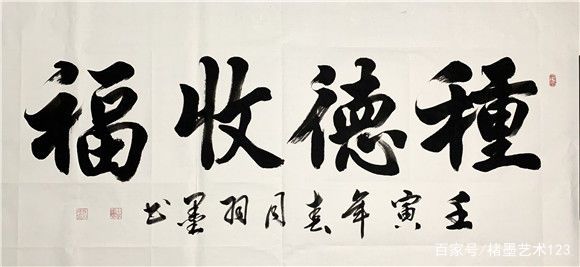 種德收福
壬寅年春月羽墨书
百家号/楮墨艺术123